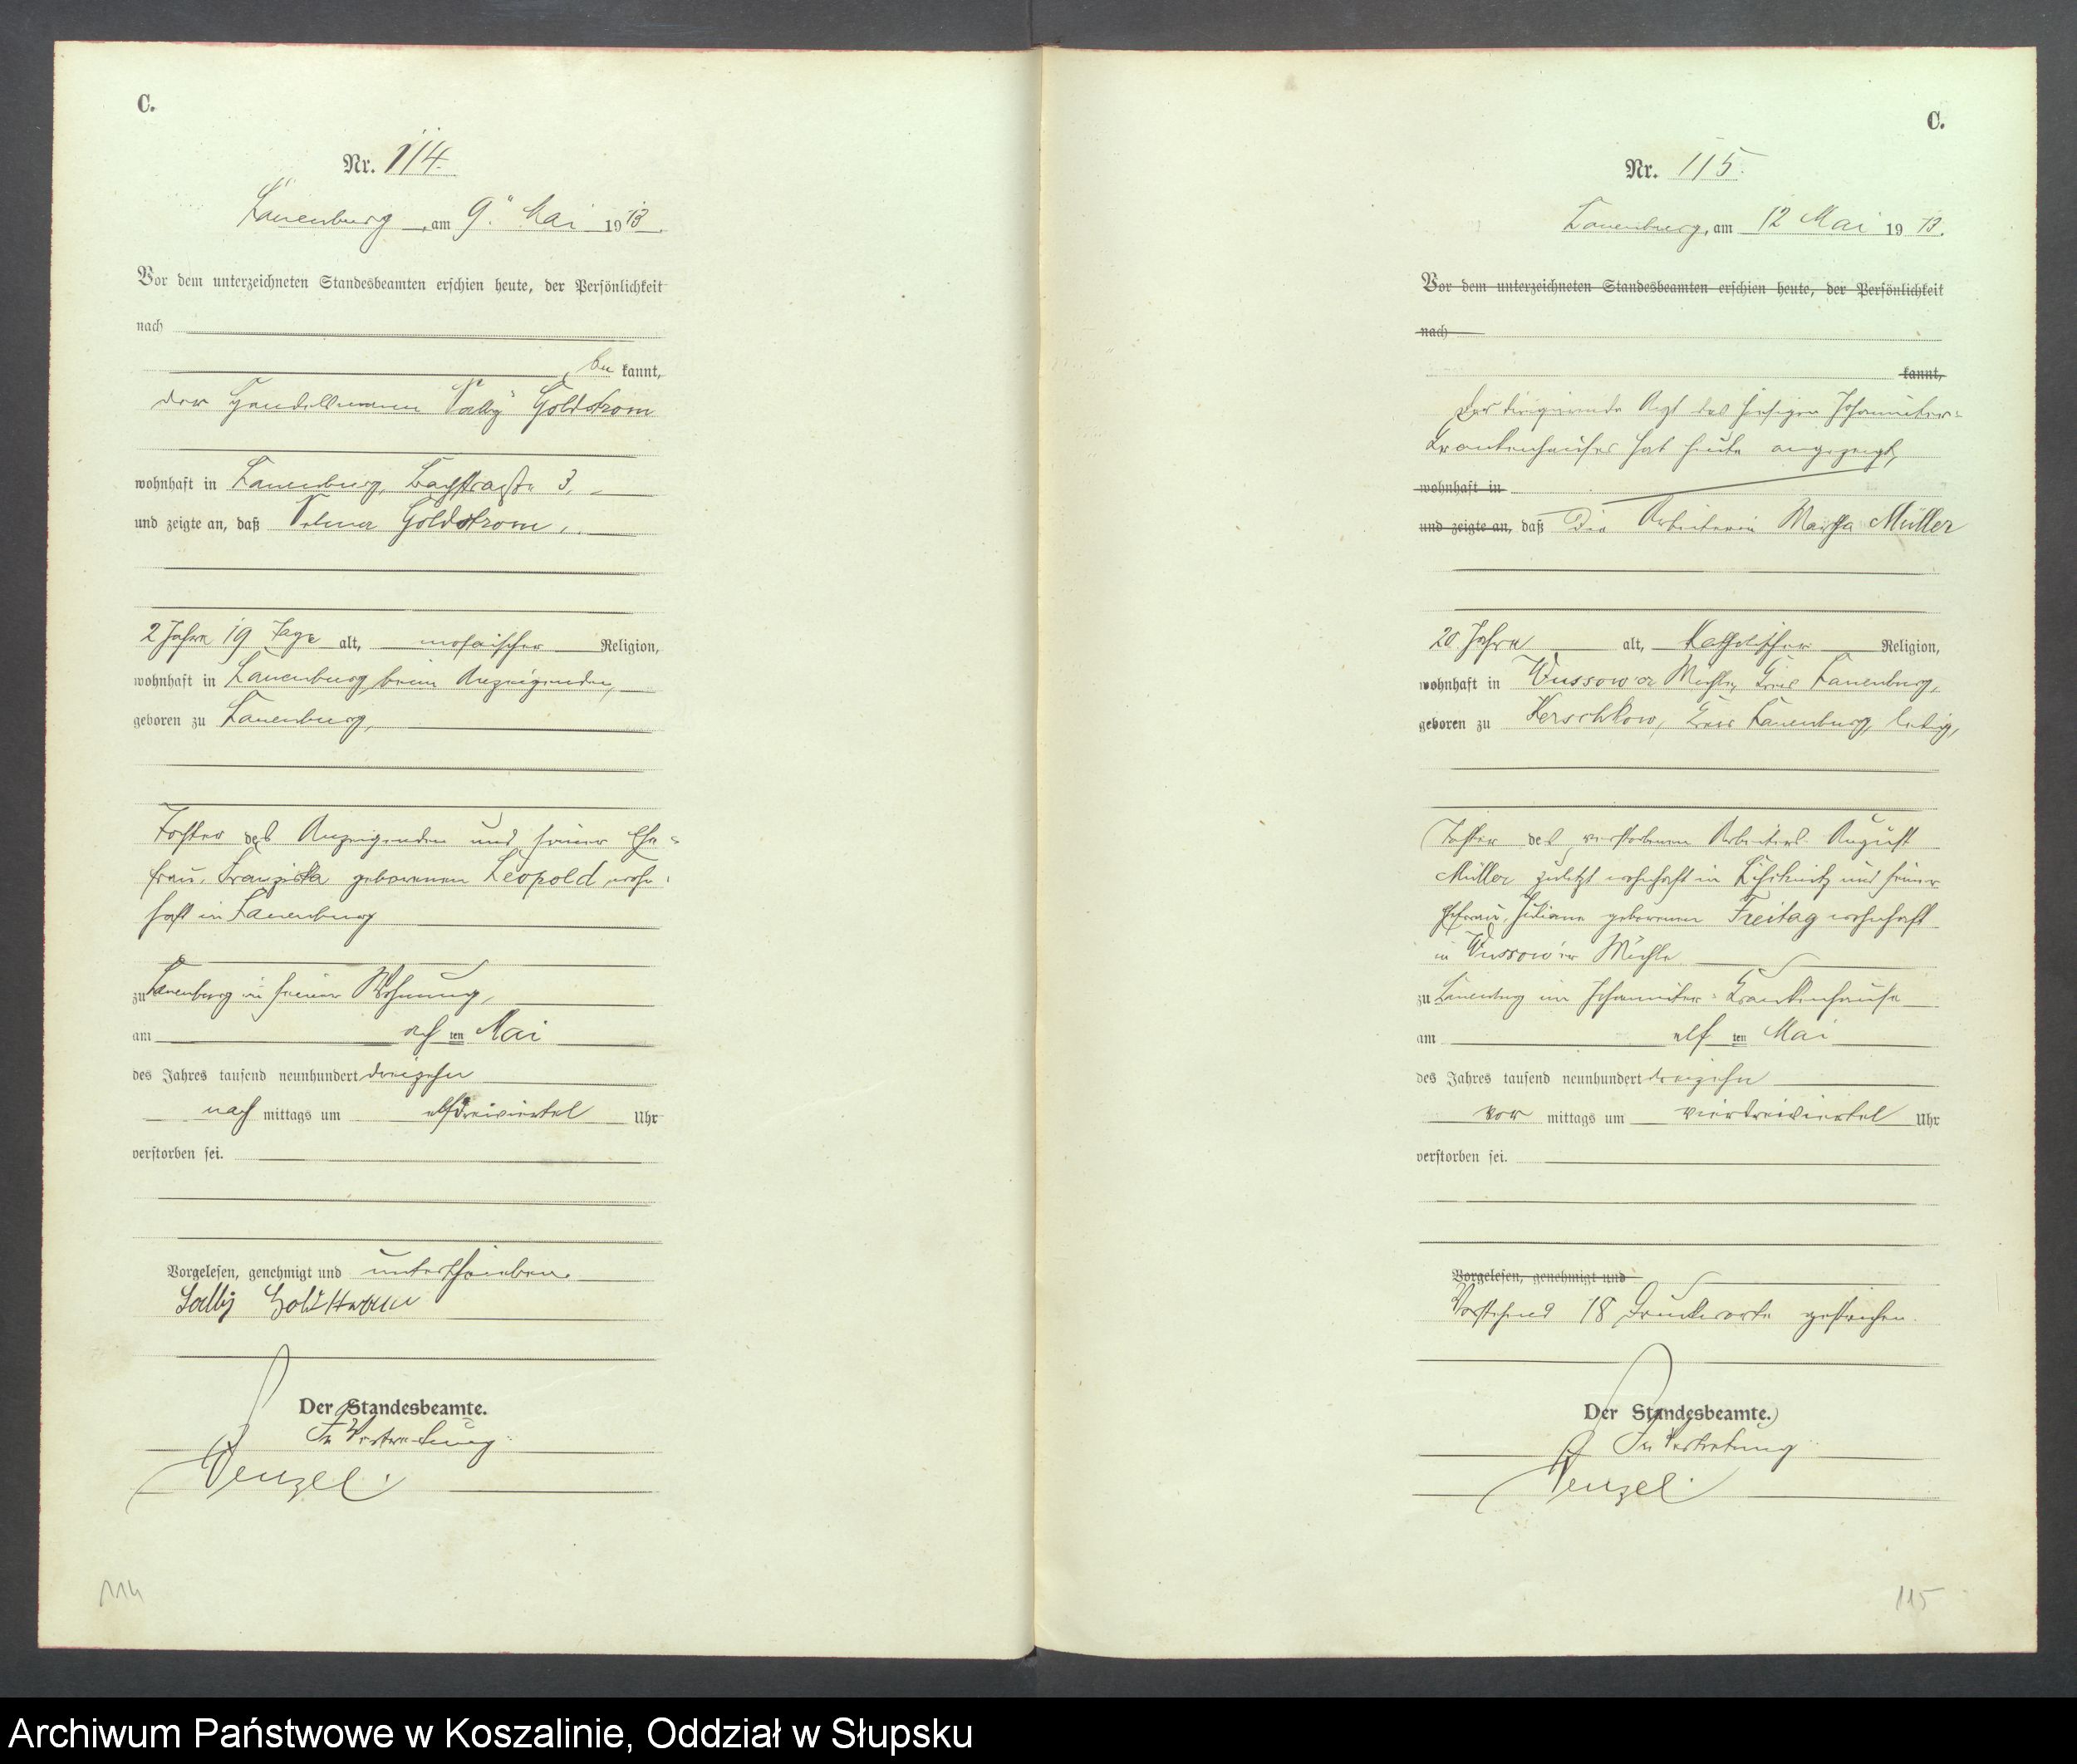 C.
Nr. 114.
Lauenburg, am 9. Mai 1913.
Vor dem unterzeichneten Standesbeamten erschien heute, der Persönlichkeit
nach
be kannt,
der Handelsmann Sally Goldstrom
wohnhaft in Lauenburg, Bachstraße 3,
und zeigte an, daß Selma Goldstrom,
2 Jahre 19 Tage alt, mosaischer Religion,
wohnhaft in Lauenburg beim Anzeigenden,
geboren zu Lauenburg,
Tochter des Anzeigenden und seiner Ehe-
frau, Franziska geborenen Leopold, wohn-
haft in Lauenburg
zu Lauenburg in seiner Wohnung,
am acht ten Mai
des Jahres tausend neunhundert dreizehn
nach mittags um elfdreiviertel Uhr
verstorben sei.
Vorgelesen, genehmigt und unterschrieben.
Sally Goldstrom
Der Standesbeamte.
In Vertretung:
Wenzel.
114
C.
Nr. 115.
Lauenburg, am 12 Mai 1913.
Vor dem unterzeichneten Standesbeamten erschien heute, der Persönlichkeit
nach
kannt,
Der dirigierende Arzt des hiesigen Johanniter-
Krankenhauses hat heute angezeigt,
wohnhaft in
und zeigte an, daß die Arbeiterin Martha Müller
20 Jahre alt, katholischer Religion,
wohnhaft in Wussow'er Mühle, Kreis Lauenburg,
geboren zu Kerschkow, Kreis Lauenburg, ledig,
Tochter des verstorbenen Arbeiters August
Müller zuletzt wohnhaft in und seiner
Ehefrau, Juliane geborenen Freitag wohnhaft
in Wussow'er Mühle
zu Lauenburg im Johanniter-Krankenhause
am elf ten Mai
des Jahres tausend neunhundert dreizehn
vor mittags um vierdreiviertel Uhr
verstorben sei.
Vorgelesen, genehmigt und
Vorstehend 18 Druckworte gestrichen.
Der Standesbeamte.
In Vertretung:
Wenzel.
115
Archiwum Państwowe w Koszalinie, Oddział w Słupsku